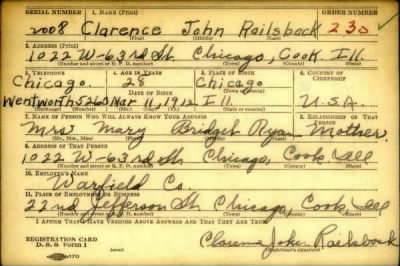 SERIAL NUMBER 1. NAME (Print) ORDER NUMBER
2008 Clarence John Railsback 230
(First) (Middle) (Last)
2. ADDRESS (Print)
1022 W-63rd St. Chicago, Cook Ill.
(Number and street or R. F. D. number) (Town) (County) (State)
3. TELEPHONE 4. AGE IN YEARS 5. PLACE OF BIRTH 6. COUNTRY OF CITIZENSHIP
Chicago 28 Chicago
DATE OF BIRTH
Wentworth 5260 Mar 11, 1912 Ill. U.S.A.
7. NAME OF PERSON WHO WILL ALWAYS KNOW YOUR ADDRESS 8. RELATIONSHIP OF THAT PERSON
Mrs Mary Bridget Ryan Mother
(Mr., Mrs., Miss) (First) (Middle) (Last)
9. ADDRESS OF THAT PERSON
1022 W-63rd St. Chicago, Cook Ill
(Number and street or R. F. D. number) (Town) (County) (State)
10. EMPLOYER'S NAME
Warfield Co.
11. PLACE OF EMPLOYMENT OR BUSINESS
22nd Jefferson St. Chicago, Cook, Ill
(Number and street or R. F. D. number) (Town) (County) (State)
I AFFIRM THAT I HAVE VERIFIED ABOVE ANSWERS AND THAT THEY ARE TRUE.
REGISTRATION CARD
D. S. S. Form 1 Clarence John Railsback